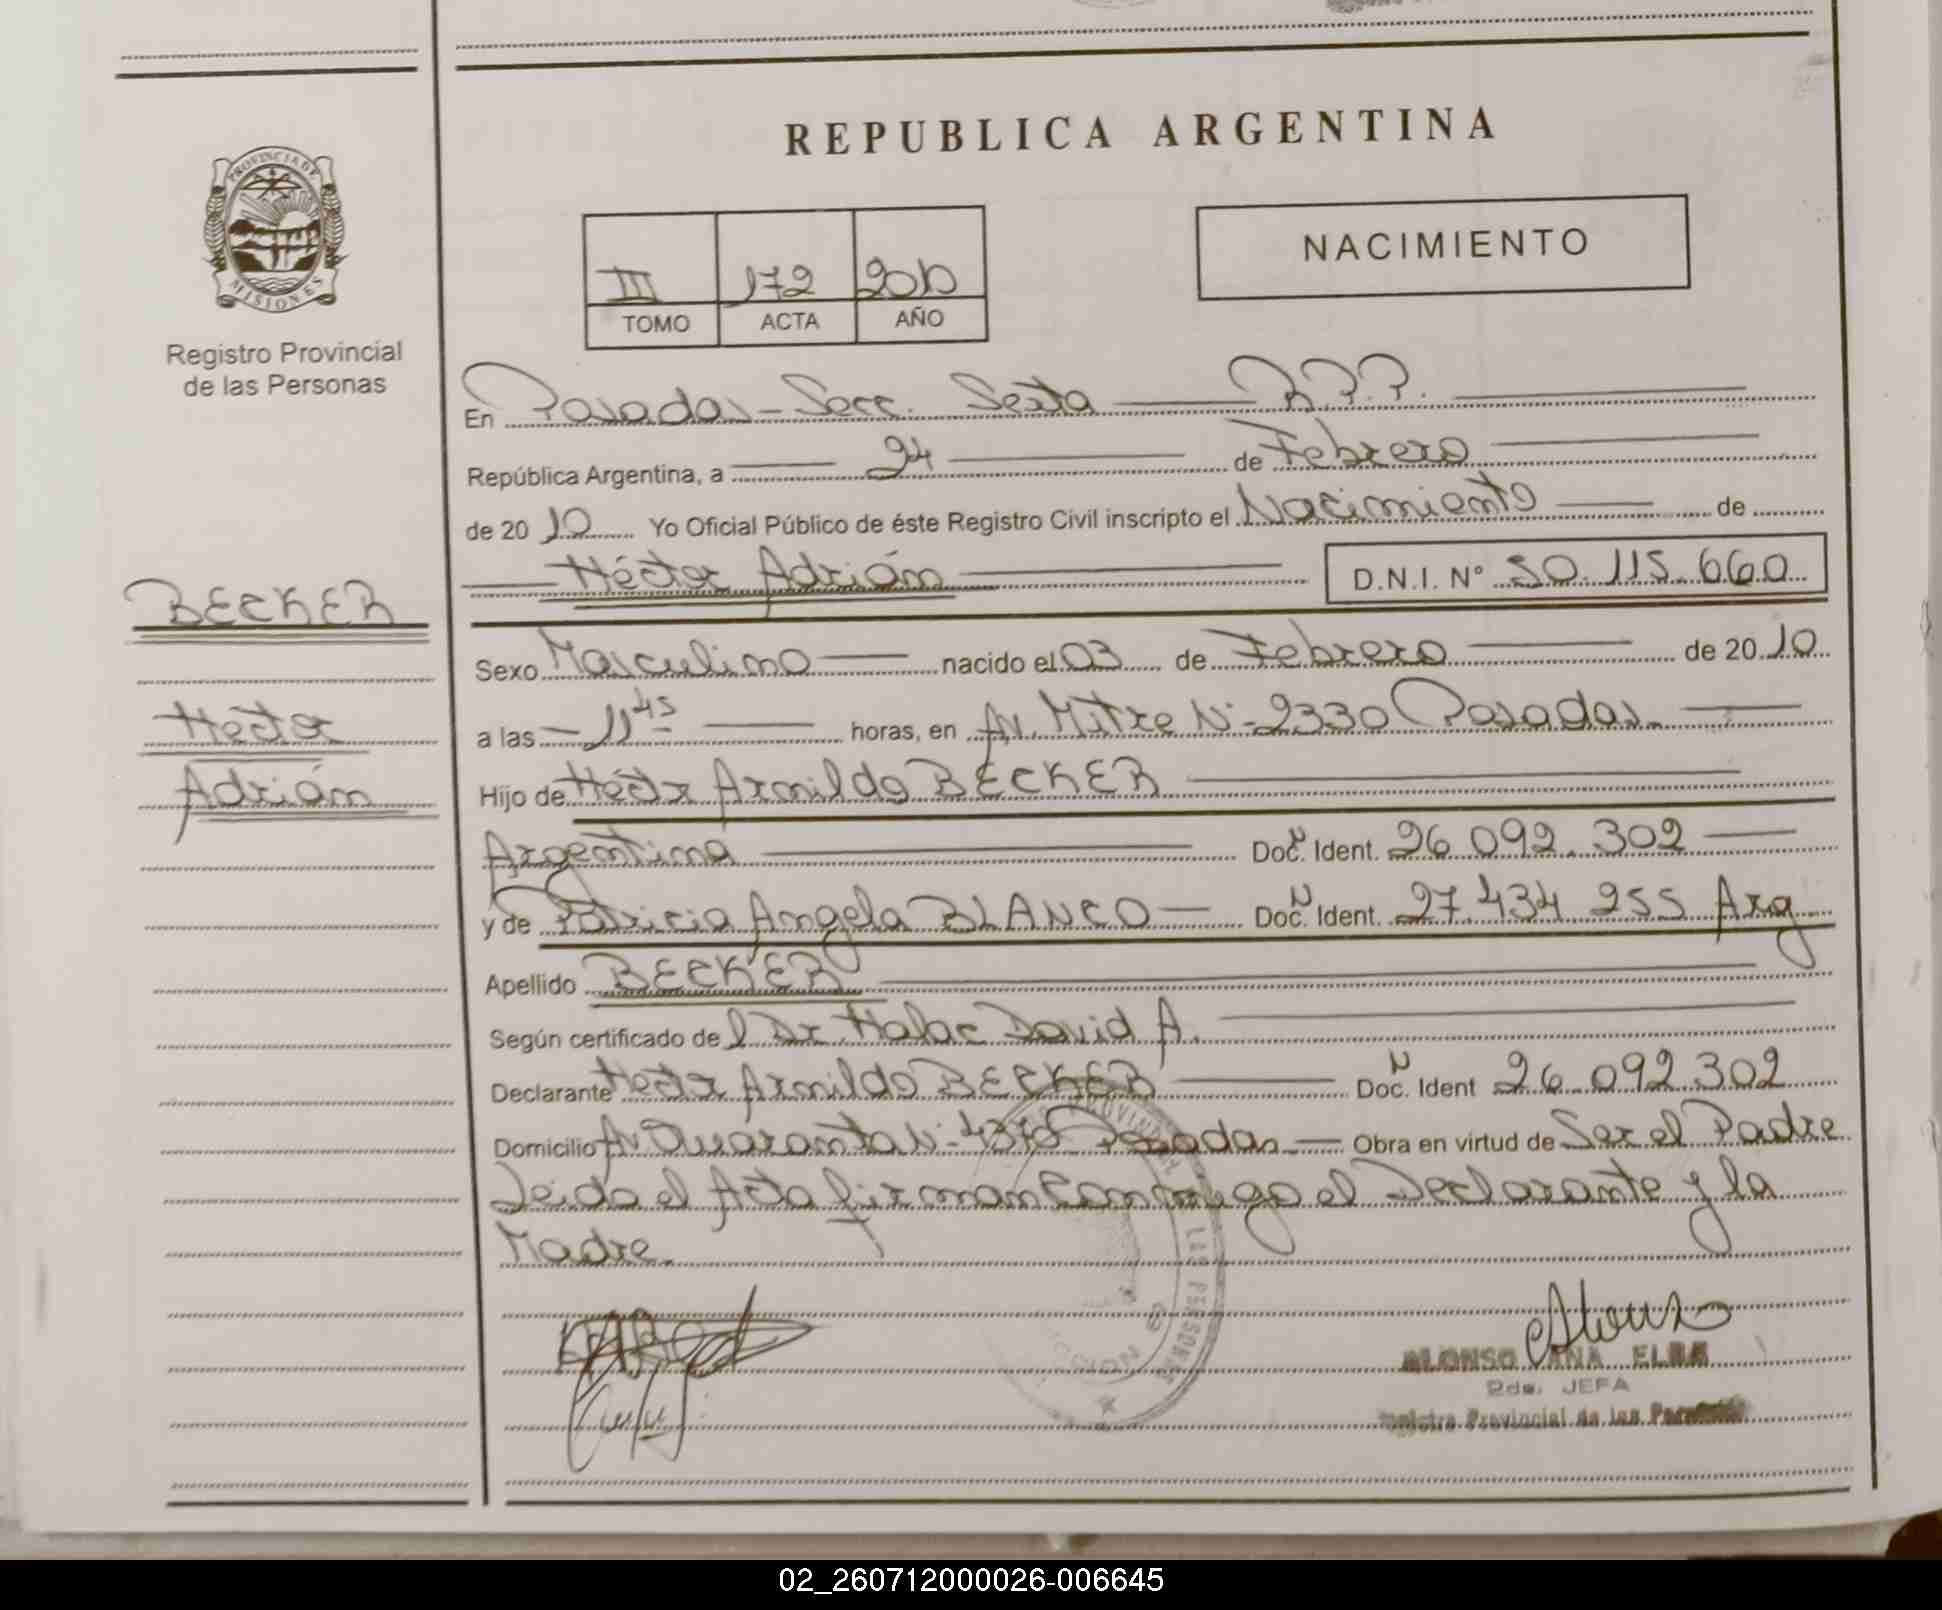 REPUBLICA ARGENTINA
PROVINCIA DE
MISIONES
Registro Provincial
de las Personas
NACIMIENTO
III 172 2010
TOMO ACTA AÑO
En Posadas - Secc. Sexta R.P.P.
República Argentina, a 24 de Febrero
de 20 10 Yo Oficial Público de éste Registro Civil inscripto el Nacimiento de
Héctor Adrián D.N.I. Nº 50.115.660
BECKER
Héctor
Adrián
Sexo Masculino nacido el 03 de Febrero de 20 10
a las 11 45 horas, en Av. Mitre Nº 2330 Posadas
Hijo de Héctor Arnildo BECKER
Argentina Doc. N Ident. 26.092.302
y de Patricia Angela BLANCO Doc. N Ident. 27.434.255 Arg
Apellido BECKER
Según certificado de l Dr. Halac David A.
Declarante Héctor Arnildo BECKER Doc. N Ident 26.092.302
Domicilio Av. Nº Posadas Obra en virtud de Ser el Padre
Leida el Acta firman Conmigo el Declarante y la
Madre.
LAS PERSONAS
ALONSO ANA ELBA
JEFA
Registro Provincial de las Personas
02_260712000026-006645